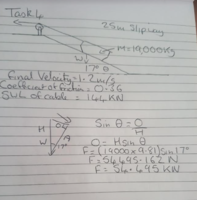 Task 4
25m Slipway
M=19,000kg
W
17° θ
Final Velocity = 1.2m/s
Coefficient of friction = 0.36
SWL of cable = 144 KN
H
W
17°
Sin θ = O/H
O = HSin θ
F=(19000×9.81)Sin17°
F=54495.162 N
F= 54.495 KN